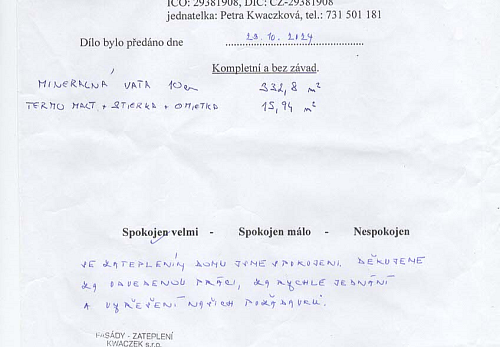 IČO: 29381908, DIČ: CZ-29381908
jednatelka: Petra Kwaczková, tel.: 731 501 181
Dílo bylo předáno dne 23.10.2024
Kompletní a bez závad.
MINERALNÁ VATA 10cm 332,8 m²
TERMO MALT + STIERKA + OMIETKA 15,94 m²
Spokojen velmi - Spokojen málo - Nespokojen
SE ZATEPLENÍM DOMU JSME SPOKOJENI. DĚKUJEME
ZA ODVEDENOU PRÁCI, ZA RYCHLÉ JEDNÁNÍ
A VYŘEŠENÍ NAŠICH POŽADAVKŮ.
FASÁDY - ZATEPLENÍ
KWACZEK s.r.o.